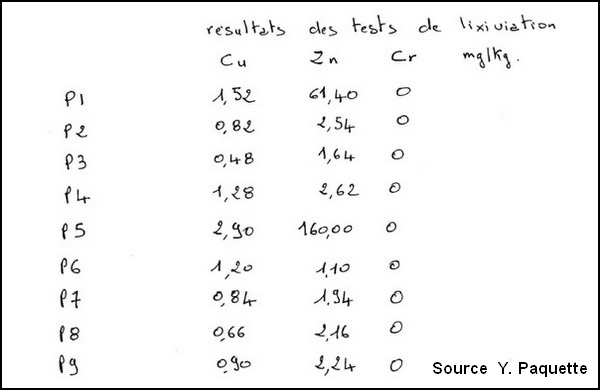 resultats des tests de lixiviation
Cu Zn Cr mg/kg.
P1 1,52 61,40 0
P2 0,82 2,54 0
P3 0,48 1,64 0
P4 1,28 2,62 0
P5 2,90 160,00 0
P6 1,20 1,10 0
P7 0,84 1,94 0
P8 0,66 2,16 0
P9 0,90 2,24 0
Source Y. Paquette